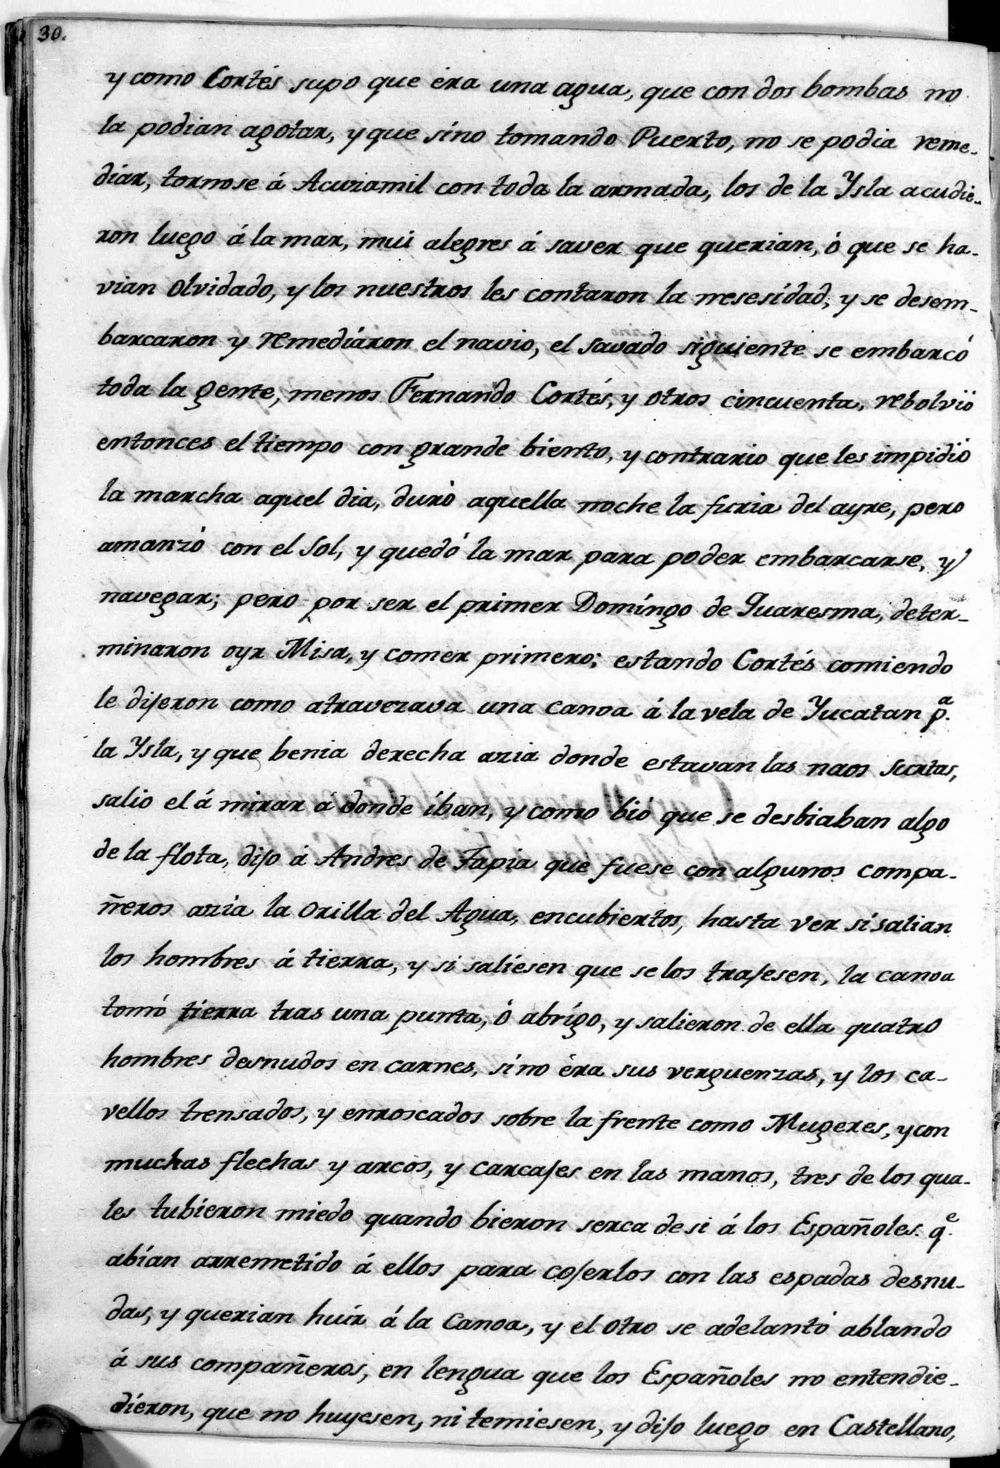 30.
y como Cortés supo que éra una agua, que con dos bombas no
la podian agotar, y que síno tomando Puerto, no se podia reme-
diár, tornose á Acuzamil con toda la armada, los de la Ysla acudie-
ron luego á la mar, mui alegres á saver que querian, ó que se ha-
vian olvidado, y los nuestros les contaron la nesesidad, y se desem-
barcaron y remediáron el navio, el savado siguiente se embarcó
toda la gente, menos Fernando Cortés, y otros cincuenta, rebolvió
entonces el tiempo con grande biento, y contrario que les impidió
la marcha aquel dia, duró aquella noche la furia del ayre, pero
amanzó con el Sol, y quedó la mar para poder embarcarse, y
navegar; pero por ser el primer Domíngo de Quaresma, deter-
minaron oyr Misa, y comer primero; estando Cortés comiendo
le dijeron como atravezava una canoa á la vela de Yucatan pª.
la Ysla, y que benia derecha azia donde estavan las naos surtas,
salio el á mirar á donde íban, y como bió que se desbiaban algo
de la flota, dijo á Andres de Tapia que fuese con algunos compa-
ñeros azía la orilla del Agua, encubiertos, hasta ver si salian
los hombres á tierra, y si saliesen que se los trajesen, la canoa
tomó tierra tras una punta, ó abrígo, y salieron de ella quatro
hombres desnudos en carnes, síno éra sus verguenzas, y los ca-
vellos trensados, y enroscados sobre la frente como Mugeres, y con
muchas flechas y arcos, y carcajes en las manos, tres de los qua-
les tubieron miedo quando bieron serca de si á los Españoles qᵉ.
abían arremetído á ellos para cojerlos con las espadas desnu-
das, y querian huír á la Canoa, y el otro se adelantó ablando
á sus compañeros, en lengua que los Españoles no entendie-
dieron, que no huyesen, ni temiesen, y dijo luego en Castellano,